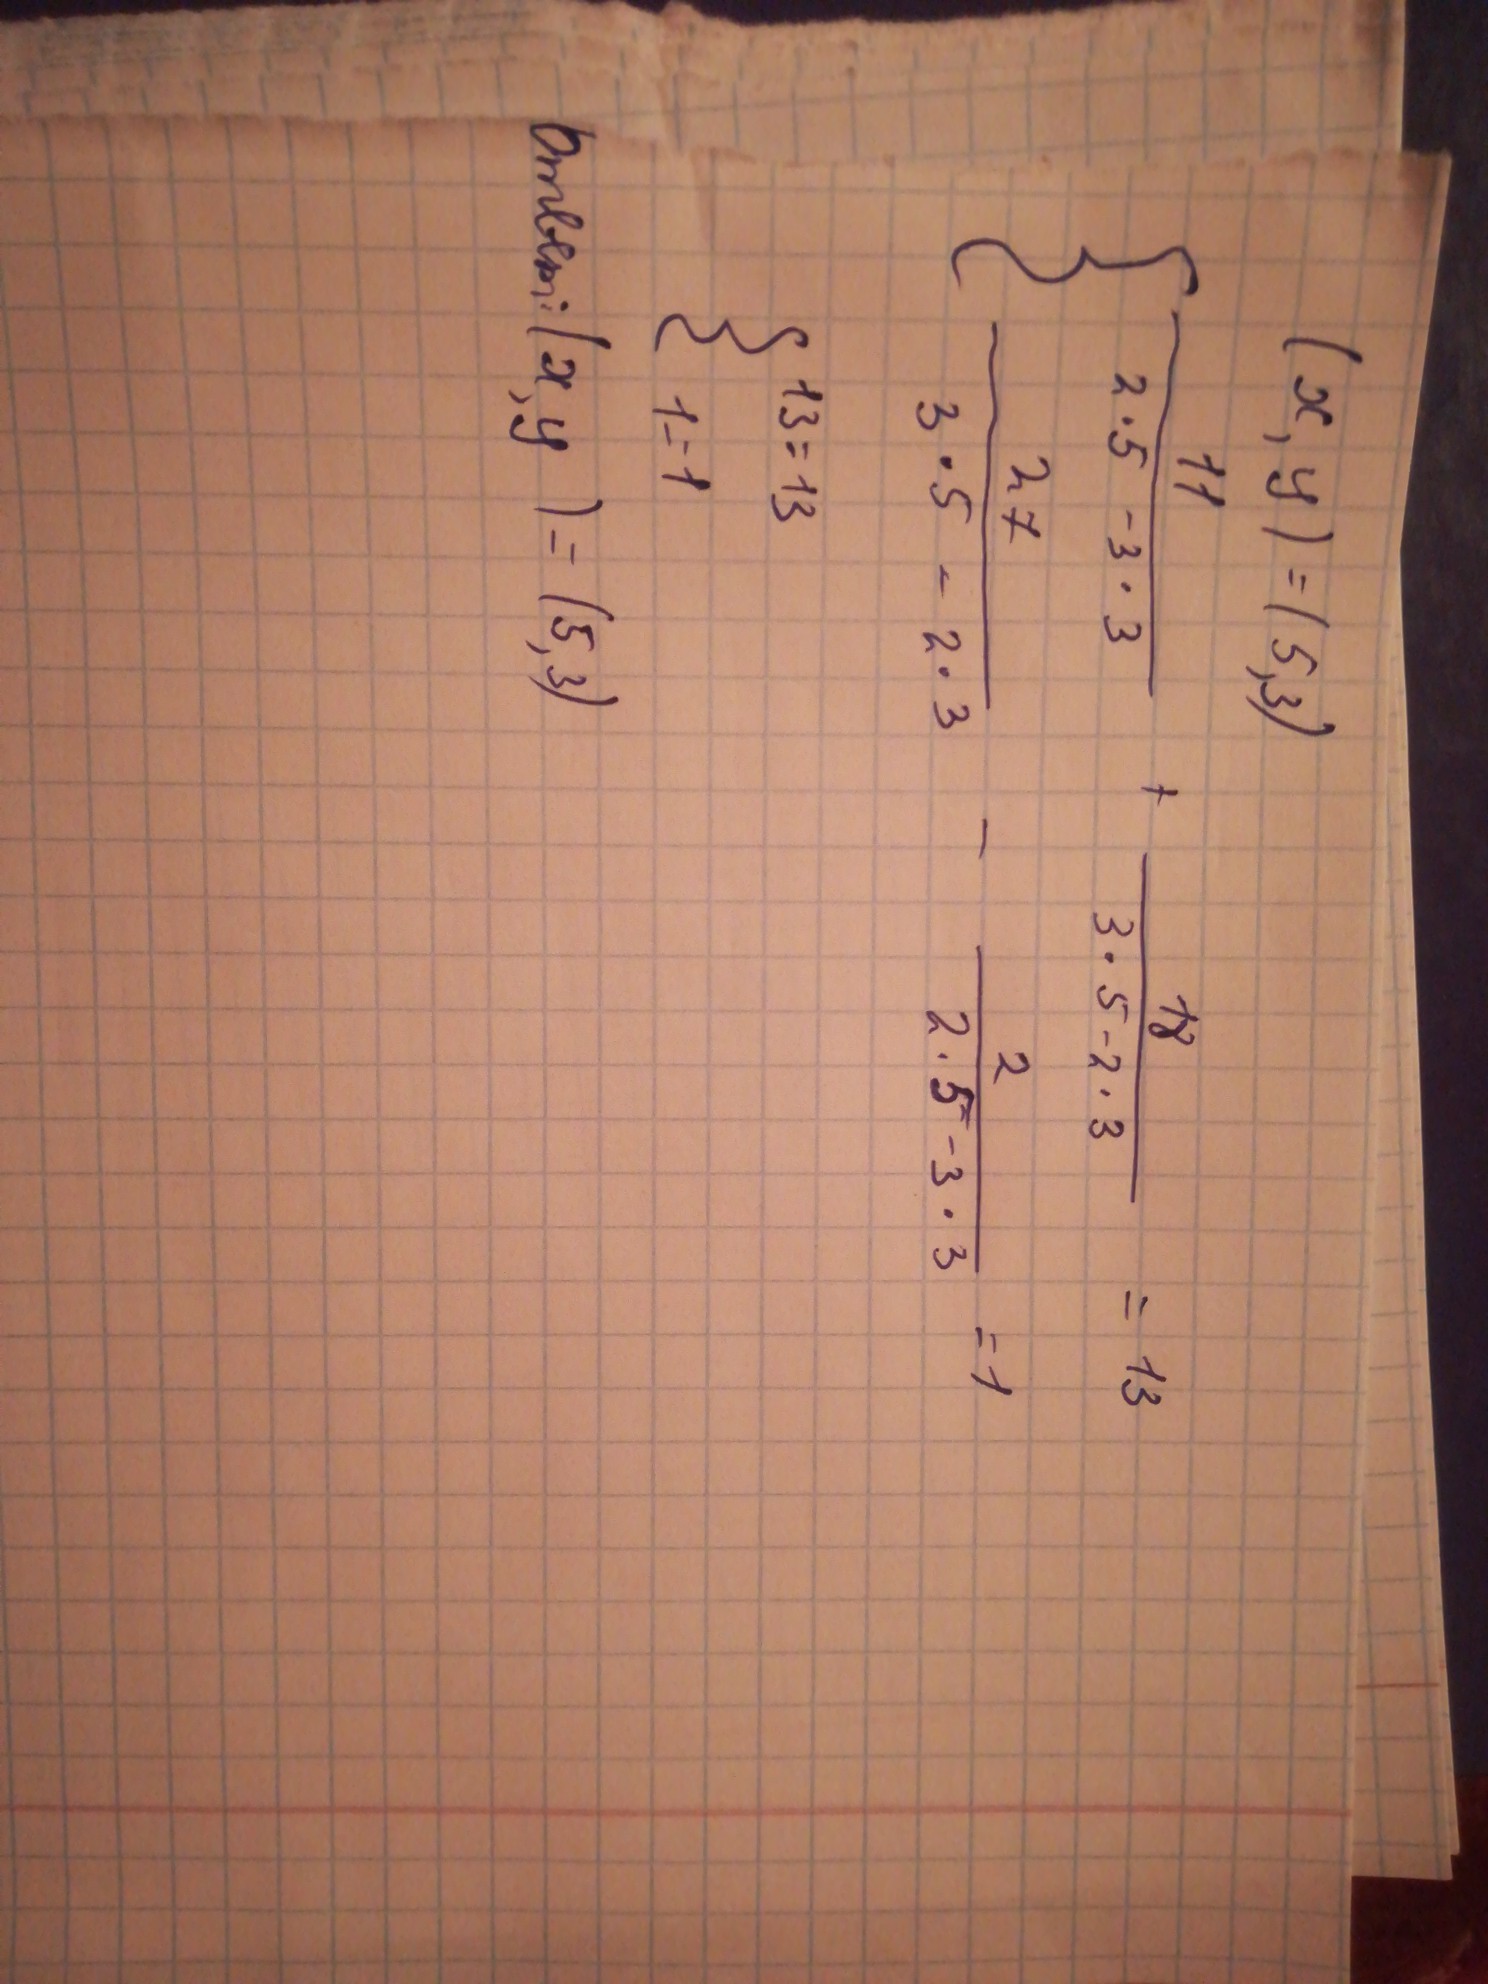 (x,y)=(5,3)
11/(2·5-3·3) + 18/(3·5-2·3) = 13
27/(3·5-2·3) - 2/(2·5-3·3) = 1
13=13
1=1
Ответ: (x,y)=(5,3)